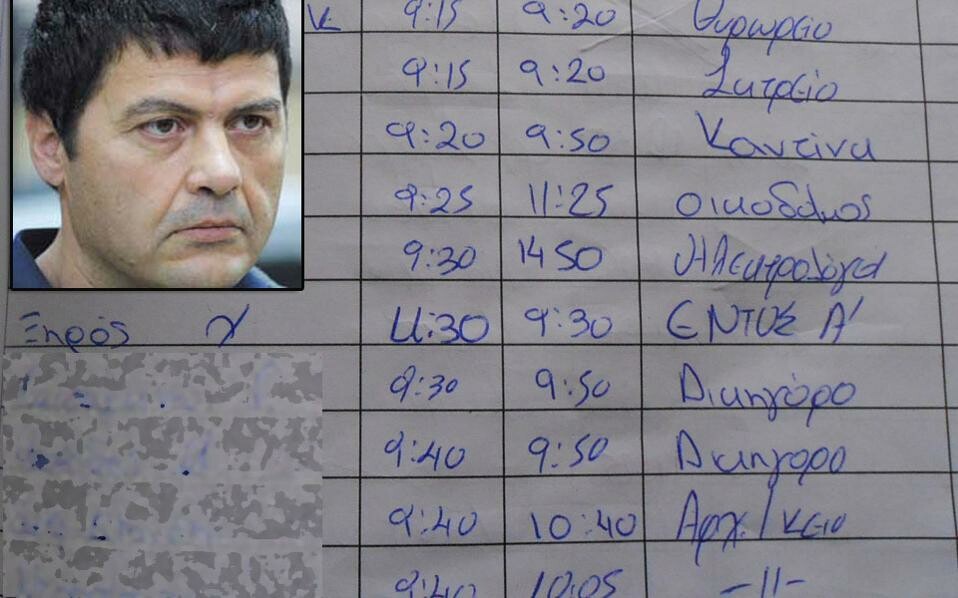 κ 9:15 9:20 Θυρωρείο
9:15 9:20 Ιατρείο
9:20 9:50 Καντίνα
9:25 11:25 οικοδόμος
9:30 14 50 Ηλεκτρολόγοι
Ξηρός 11:30 9:30 ΕΝΤΟΣ Α'
9:30 9:50 Δικηγόρο
9:40 9:50 Δικηγόρο
9:40 10:40 Αρχ/κειο
9:40 10:05 -11-